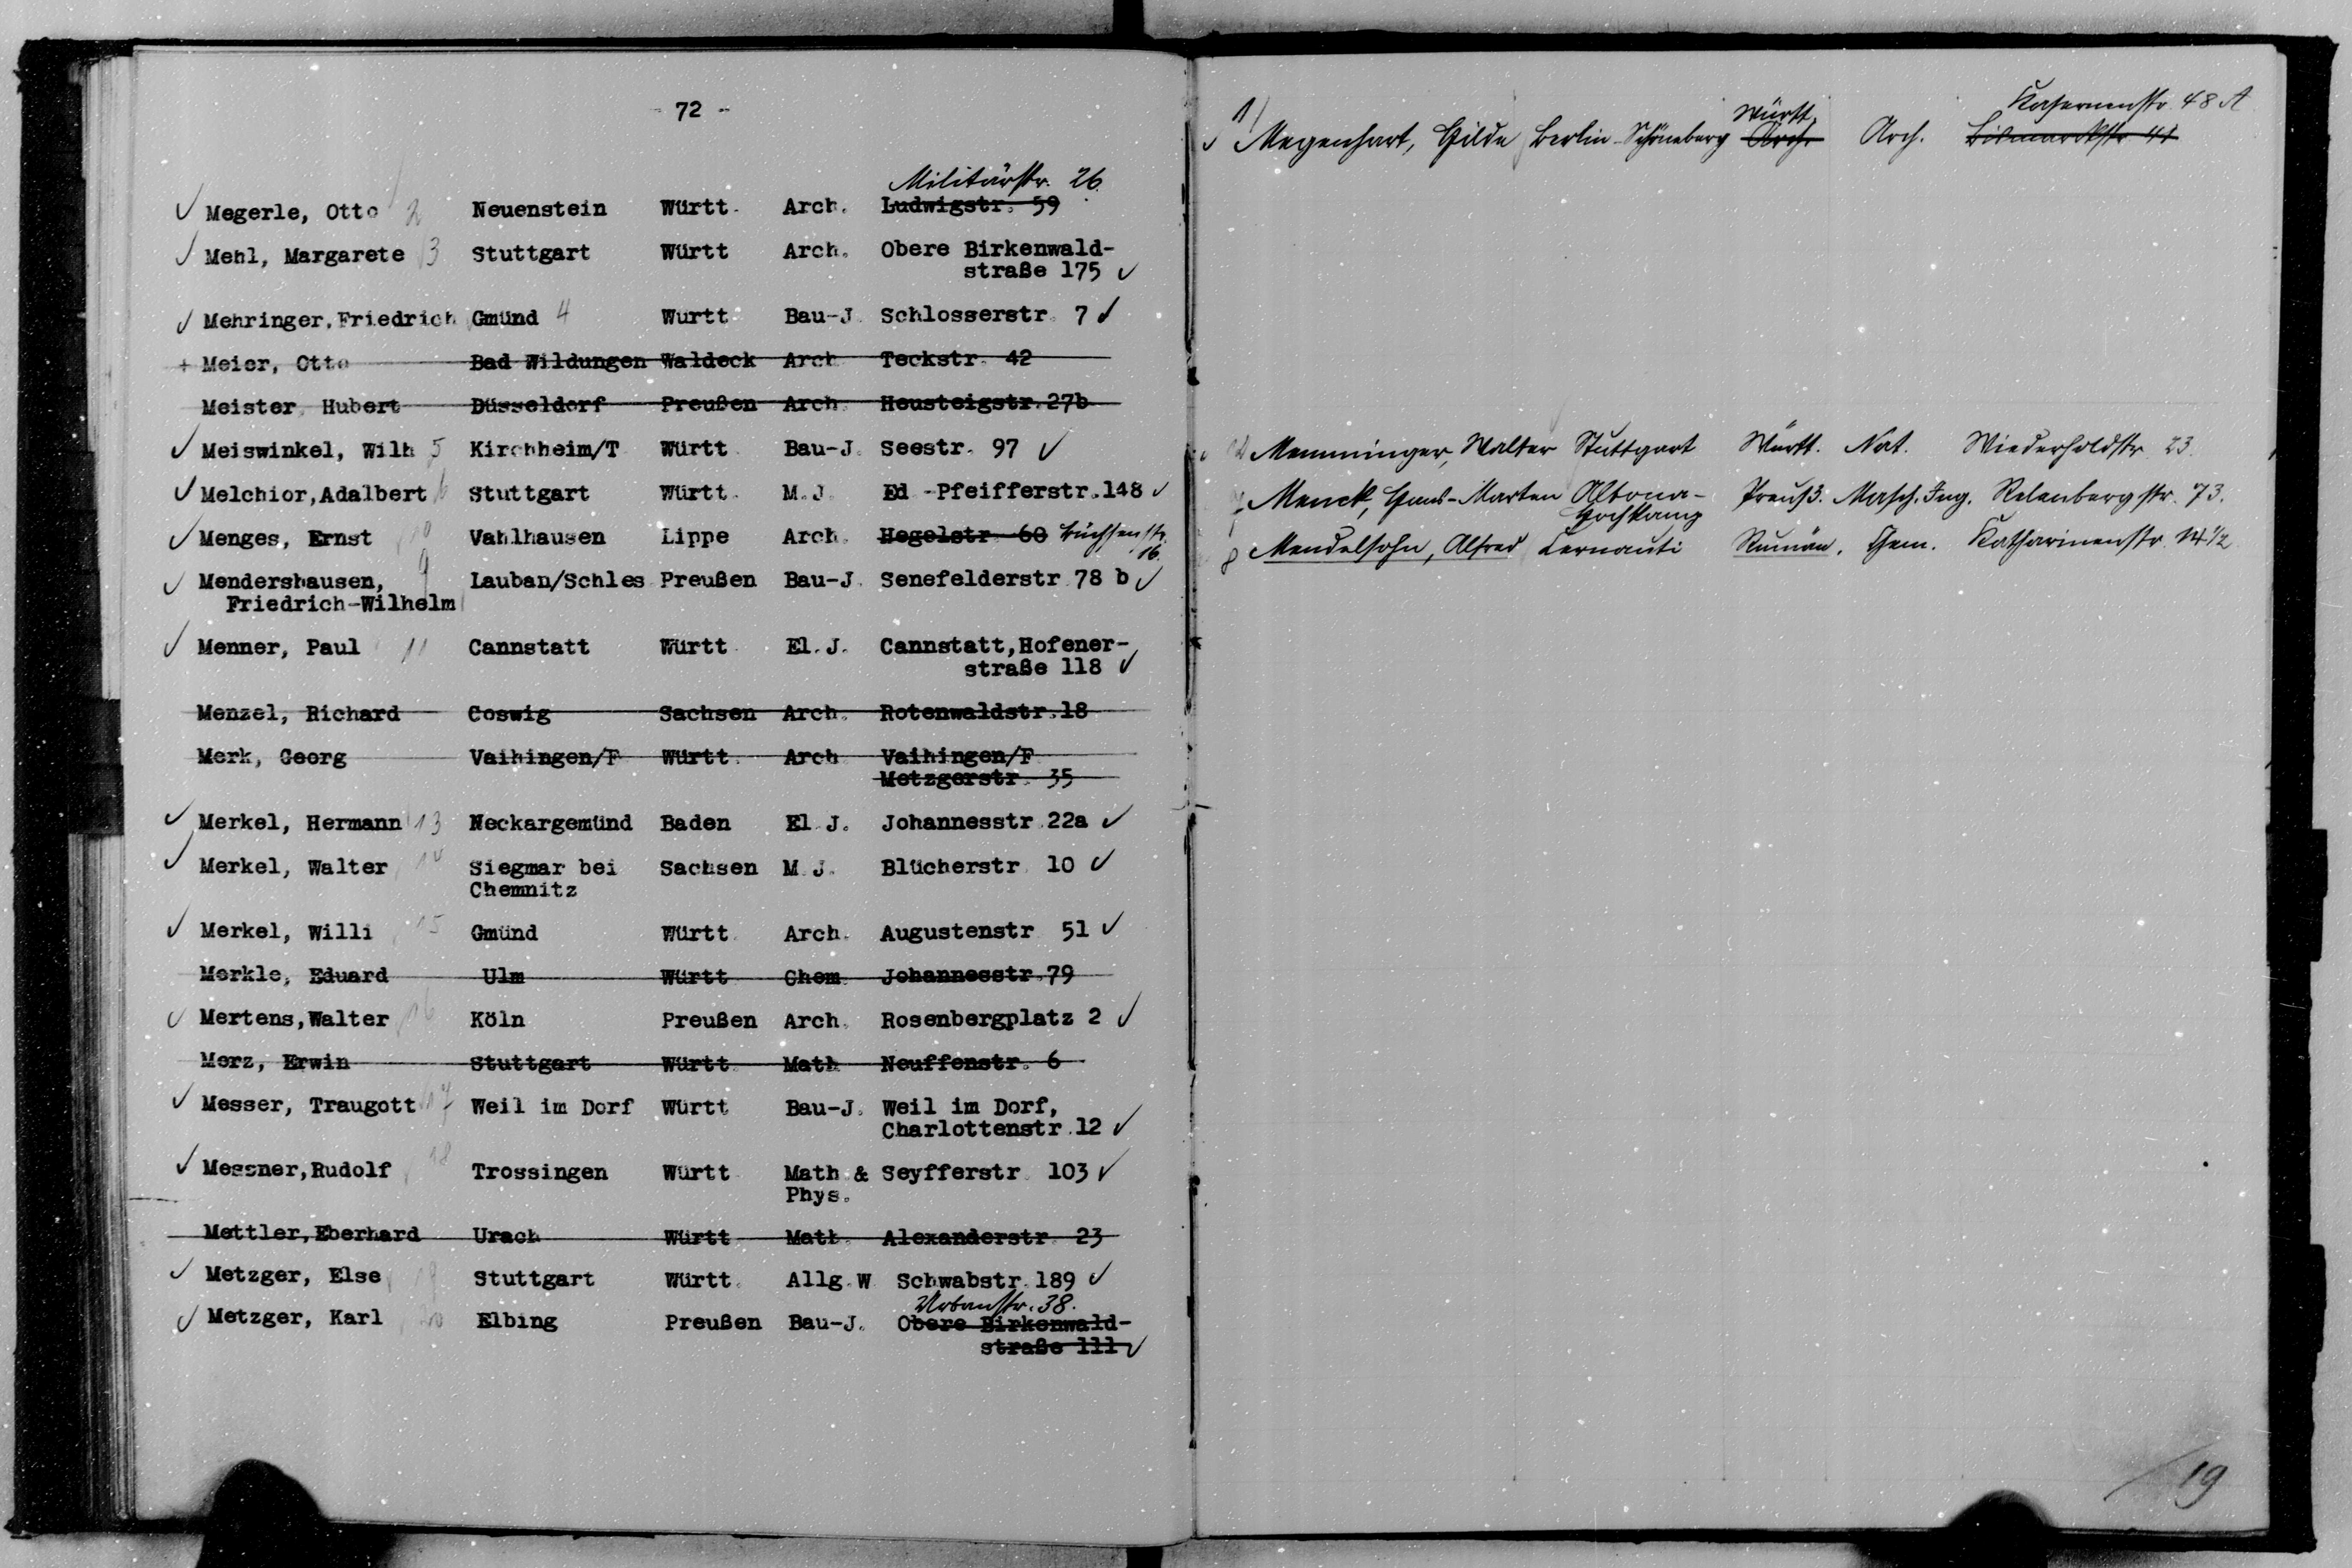 - 72 -
Militärstr. 26.
✓ Megerle, Otto 2 Neuenstein Württ. Arch. Ludwigstr. 59
✓ Mehl, Margarete 3 Stuttgart Württ Arch. Obere Birkenwald-
straße 175 ✓
✓ Mehringer, Friedrich Gmünd 4 Württ. Bau-J. Schlosserstr. 7 ✓
+ Meier, Otto Bad Wildungen Waldeck Arch Teckstr. 42
Meister Hubert Düsseldorf Preußen Arch. Heusteigstr. 27b
✓ Meiswinkel, Wilh 5 Kirchheim/T Württ. Bau-J. Seestr. 97 ✓
✓ Melchior, Adalbert 6 Stuttgart Württ. M.J. Ed -Pfeifferstr. 148 ✓
✓ Menges, Ernst 10 Vahlhausen Lippe Arch. Hegelstr. 60 Büchsenstr.
16.
✓ Mendershausen, 9 Lauban/Schles Preußen Bau-J. Senefelderstr 78 b ✓
Friedrich-Wilhelm
✓ Menner, Paul 11 Cannstatt Württ. El.J. Cannstatt, Hofener-
straße 118 ✓
Menzel, Richard Coswig Sachsen Arch. Rotenwaldstr. 18
Merk, Georg Vaihingen/F Württ. Arch Vaihingen/F
Metzgerstr. 35
✓ Merkel, Hermann 13 Neckargemünd Baden El.J. Johannesstr. 22a ✓
✓ Merkel, Walter 14 Siegmar bei Sachsen M.J. Blücherstr. 10 ✓
Chemnitz
✓ Merkel, Willi 15 Gmünd Württ. Arch. Augustenstr 51 ✓
Merkle, Eduard Ulm Württ Chem. Johannesstr. 79
✓ Mertens, Walter 16 Köln Preußen Arch. Rosenbergplatz 2 ✓
Merz, Erwin Stuttgart Württ. Math Neuffenstr. 6
✓ Messer, Traugott 17 Weil im Dorf Württ Bau-J. Weil im Dorf,
Charlottenstr. 12 ✓
✓ Messner, Rudolf 18 Trossingen Württ. Math. & Seyfferstr. 103 ✓
Phys.
Mettler, Eberhard Urach Württ Math. Alexanderstr. 23
✓ Metzger, Else 19 Stuttgart Württ. Allg.W Schwabstr. 189 ✓
Urbanstr. 38.
✓ Metzger, Karl 20 Elbing Preußen Bau-J. Obere Birkenwald-
straße 111 ✓
Württ. Kasernenstr. 48 A
✓ 1) Megenhart, Hilde Berlin-Schöneberg Arch. Arch. Bismarckstr. 41
12 Memminger, Walter Stuttgart Württ. Nat. Wiederholdstr. 23.
7 Menck, Hans-Marten Altona- Preuß. Masch. Ing. Relenbergstr. 73.
Hochkamp
8 Mendelsohn, Alfred Cernauti Rumän. Chem. Katharinenstr. 14 1/2
19